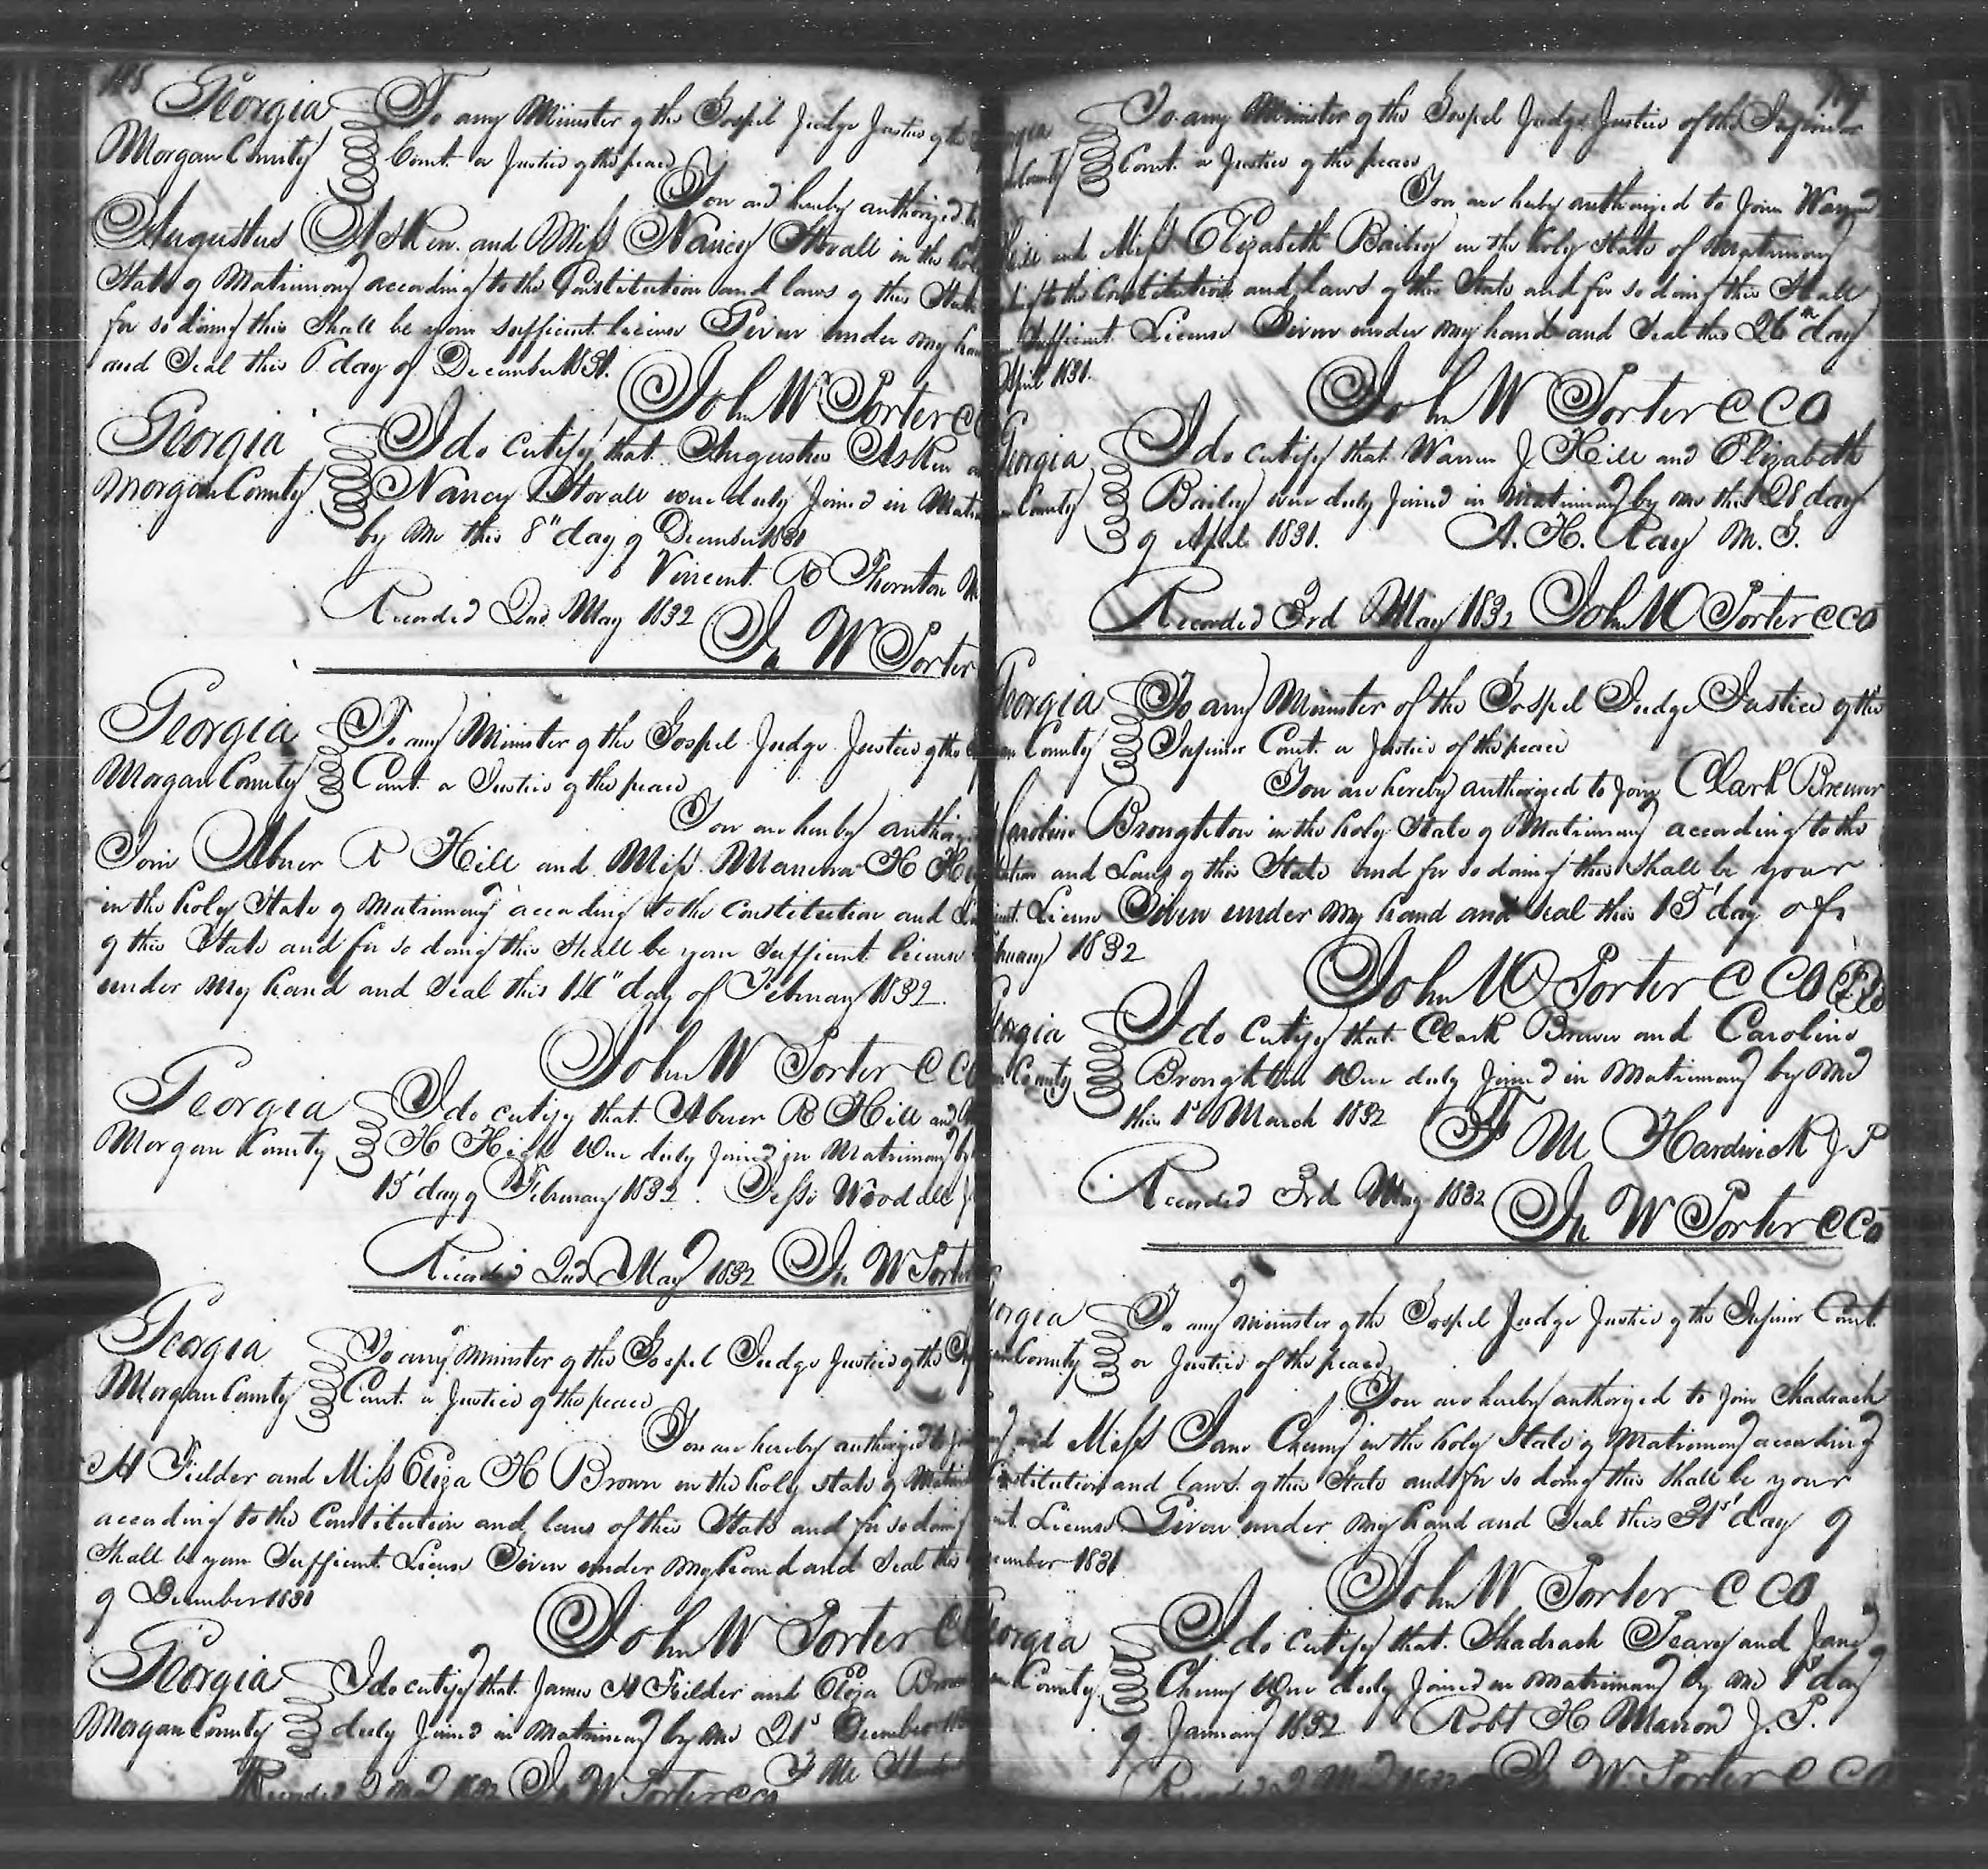 Georgia To any Minister of the Gospel Judge Justice of the
Morgan County Court or Justice of the peace
You are hereby authorized to
Augustus Asken and Miss Nancy Stovall in the hol
State of Matrimony according to the Constitution and laws of this State
for so doing this Shall be your sufficient license Given under my han
and Seal this 6 day of December 1831.
John W Porter C
Georgia I do certify that Augustus Asken a
Morgan County Nancy Stovall were duly Joined in Mat
by me this 8" day of December 1831
Vincent R Thornton M
Recorded 2nd May 1832
Jn W Porter
Georgia To any Minister of the Gospel Judge Justice of the
Morgan County Court or Justice of the peace
You are hereby authori
Join Abner R Hill and Miss Manerva H Hi
in the holy State of Matrimony according to the Constitution and
of this State and for so doing this Shall be your Sufficient license
under my hand and Seal this 14" day of February 1832.
John W Porter C CO
Georgia I do certify that Abner R Hill and
Morgan County H High Were duly Joined in Matrimony by
15 day of February 1832. Jesse Woodall
Recorded 2nd May 1832 Jn W Porter
Georgia To any Minister of the Gospel Judge Justice of the
Morgan County Court or Justice of the peace
You are hereby authorized to
H Fielder and Miss Eliza H Brown in the holy state of
according to the Constitution and laws of this State and for so doing
Shall be your Sufficient License Given under my hand and Seal this
of December 1831
John W Porter C
Georgia I do certify that James H Fielder and Eliza Brown
Morgan County duly Joined in Matrimony by me 21st December
F M
Recorded 2 May 1832 Jn W Porter CCO
To any Minister of the Gospel Judge Justice of the Inferior
County Court or Justice of the peace
You are hereby authorized to Join Warren
Hill and Miss Elizabeth Bailey in the holy State of Matrimony
to the Constitution and laws of this State and for so doing this Shall
Sufficient License Given under my hand and Seal this 26th day
April 1831.
John W Porter C CO
Georgia I do certify that Warren J. Hill and Elizabeth
County Bailey were duly Joined in Matrimony by me this 28 day
of April 1831. A. H. Ray M. G.
Recorded 3rd May 1832 John W Porter CCO
Georgia To any Minister of the Gospel Judge Justice of the
County Inferior Court or Justice of the peace
You are hereby authorized to Join Clark Brewer
Caroline Broughton in the holy State of Matrimony according to the
and Laws of this State and for so doing this Shall be your
License Given under my hand and Seal this 15 day of
1832
John W Porter C CO
I do certify that Clark Brewer and Caroline
County Broughton Were duly Joined in Matrimony by me
this 1st March 1832
F M Hardwick J P
Recorded 3rd May 1832
Jn W Porter CCO
To any Minister of the Gospel Judge Justice of the Inferior Court
County or Justice of the peace
You are hereby authorized to Join Shadrach
and Miss Jane Cheney in the holy State of Matrimony according
Constitution and laws of this State and for so doing this Shall be your
License Given under my hand and Seal this 31st day of
1831
John W Porter C CO
Georgia I do certify that Shadrach Peavy and Jane
County Cheney Were duly Joined in Matrimony by me 1st day
of January 1832 Robt H Marrow J. P.
Recorded 2 May 1832 Jn W Porter C CO